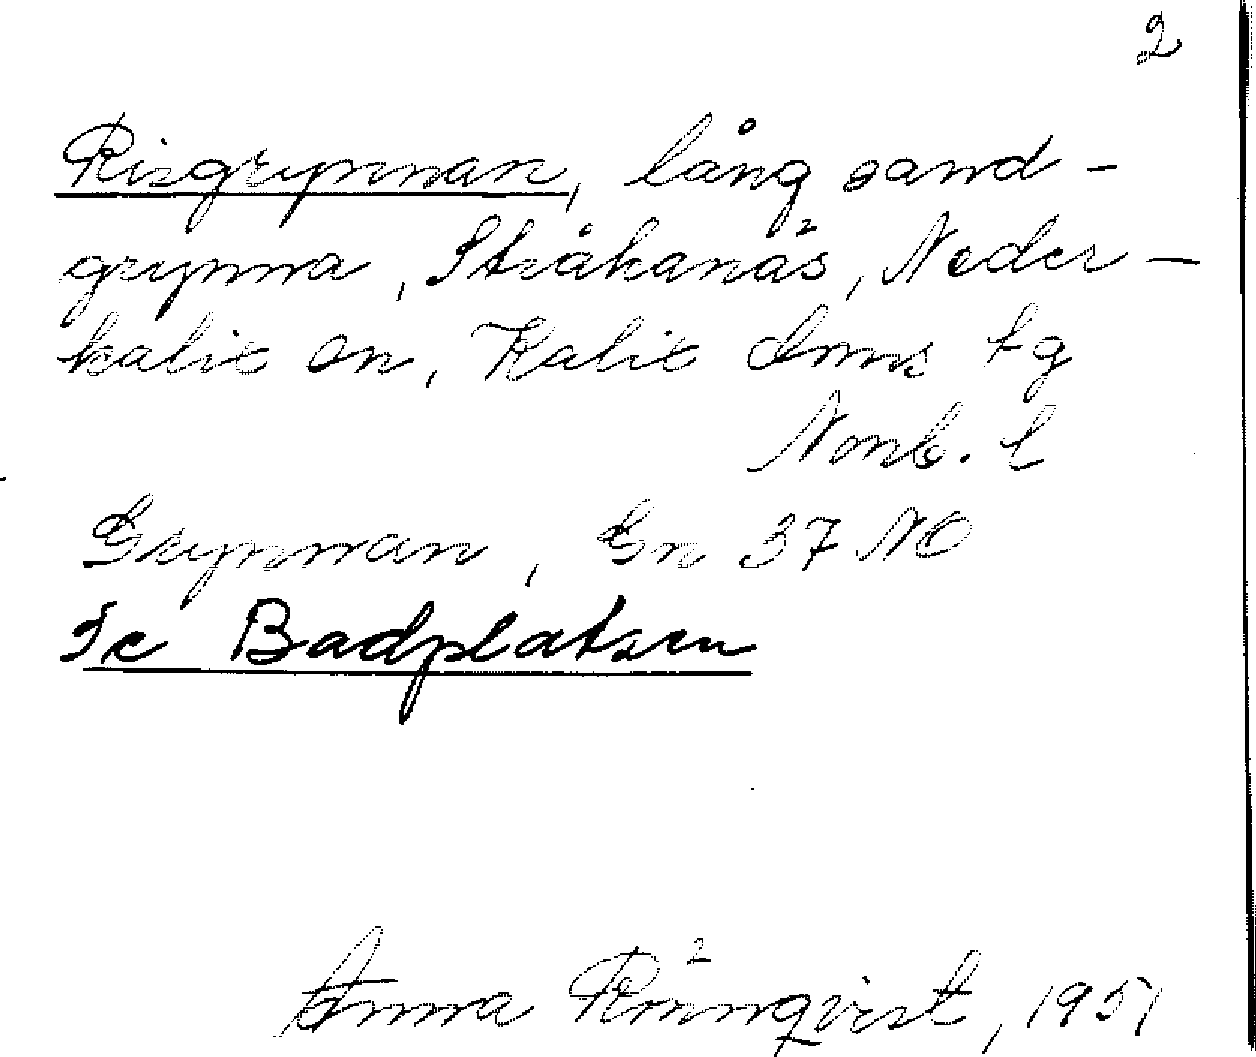 2
Risgrynnan, lång sand-
grynna, Stråkanäs, Neder-
kalix sn, Kalix dmns tg
Norrb. l
Grynnan, Gn 37 NO
Se Badplatsen
Anna Rönnqvist, 1951